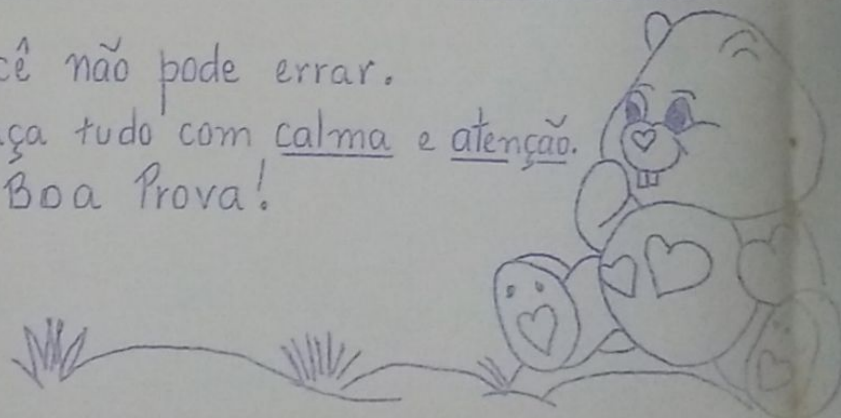 cê não pode errar.
ça tudo com calma e atenção.
Boa Prova!